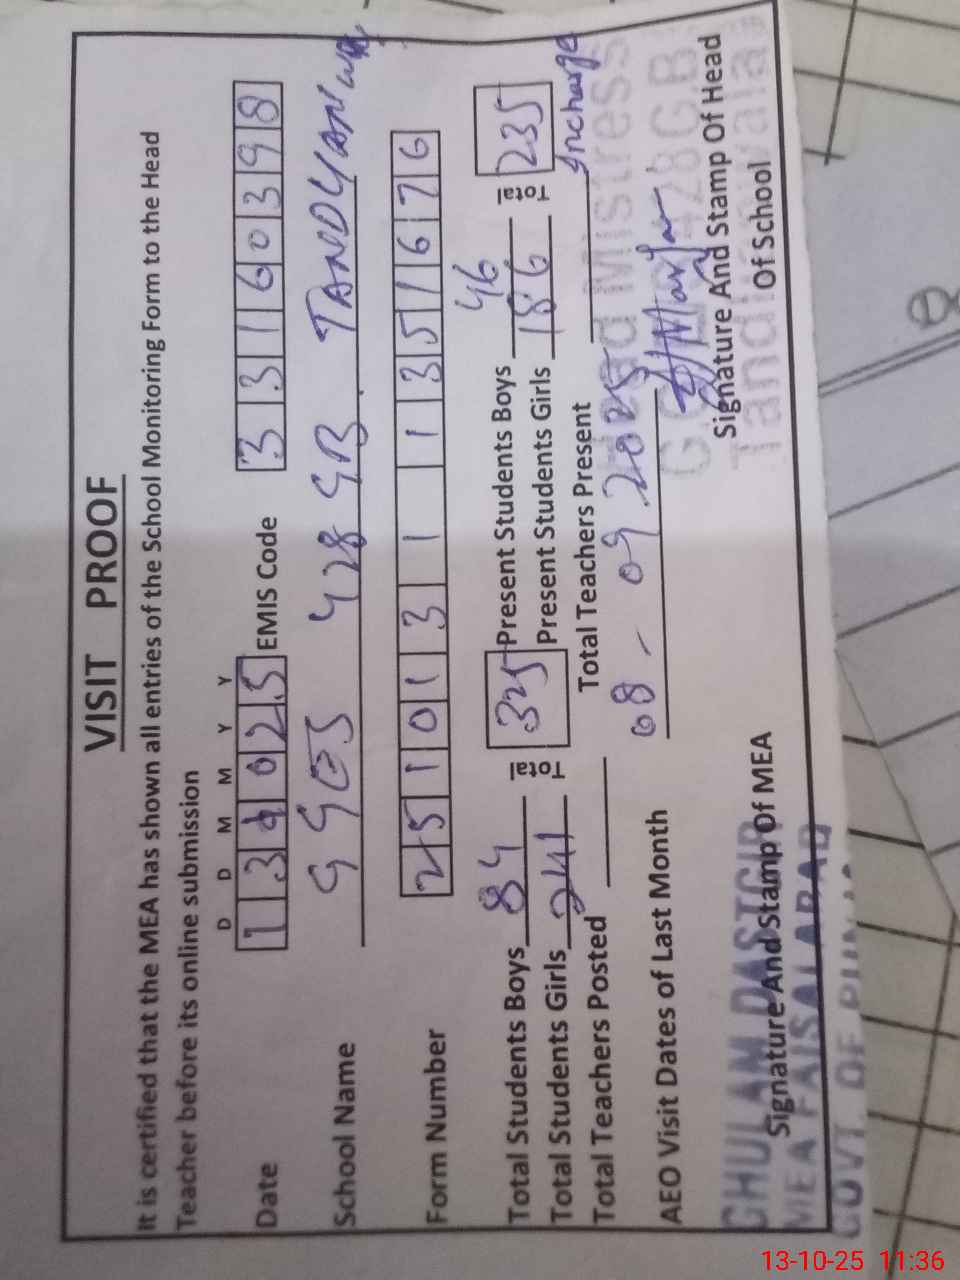 VISIT PROOF
It is certified that the MEA has shown all entries of the School Monitoring Form to the Head
Teacher before its online submission
D D M M Y Y
Date 131025 EMIS Code 33160398
School Name GGES 428 GB. TANDLIANWALA
Form Number 25101311351676
Total Students Boys 84 Total 325 Present Students Boys 46 Total 235
Total Students Girls 241 Present Students Girls 186
Total Teachers Posted Total Teachers Present Incharge
AEO Visit Dates of Last Month 08 - 09.2025
Head Mistress
428 G.B
Tandlianwala
Signature And Stamp Of MEA
Signature And Stamp Of Head
Of School
GHULAM DASTGIR
MEA FAISALABAD
GOVT. OF PUNJAB
13-10-25 11:36